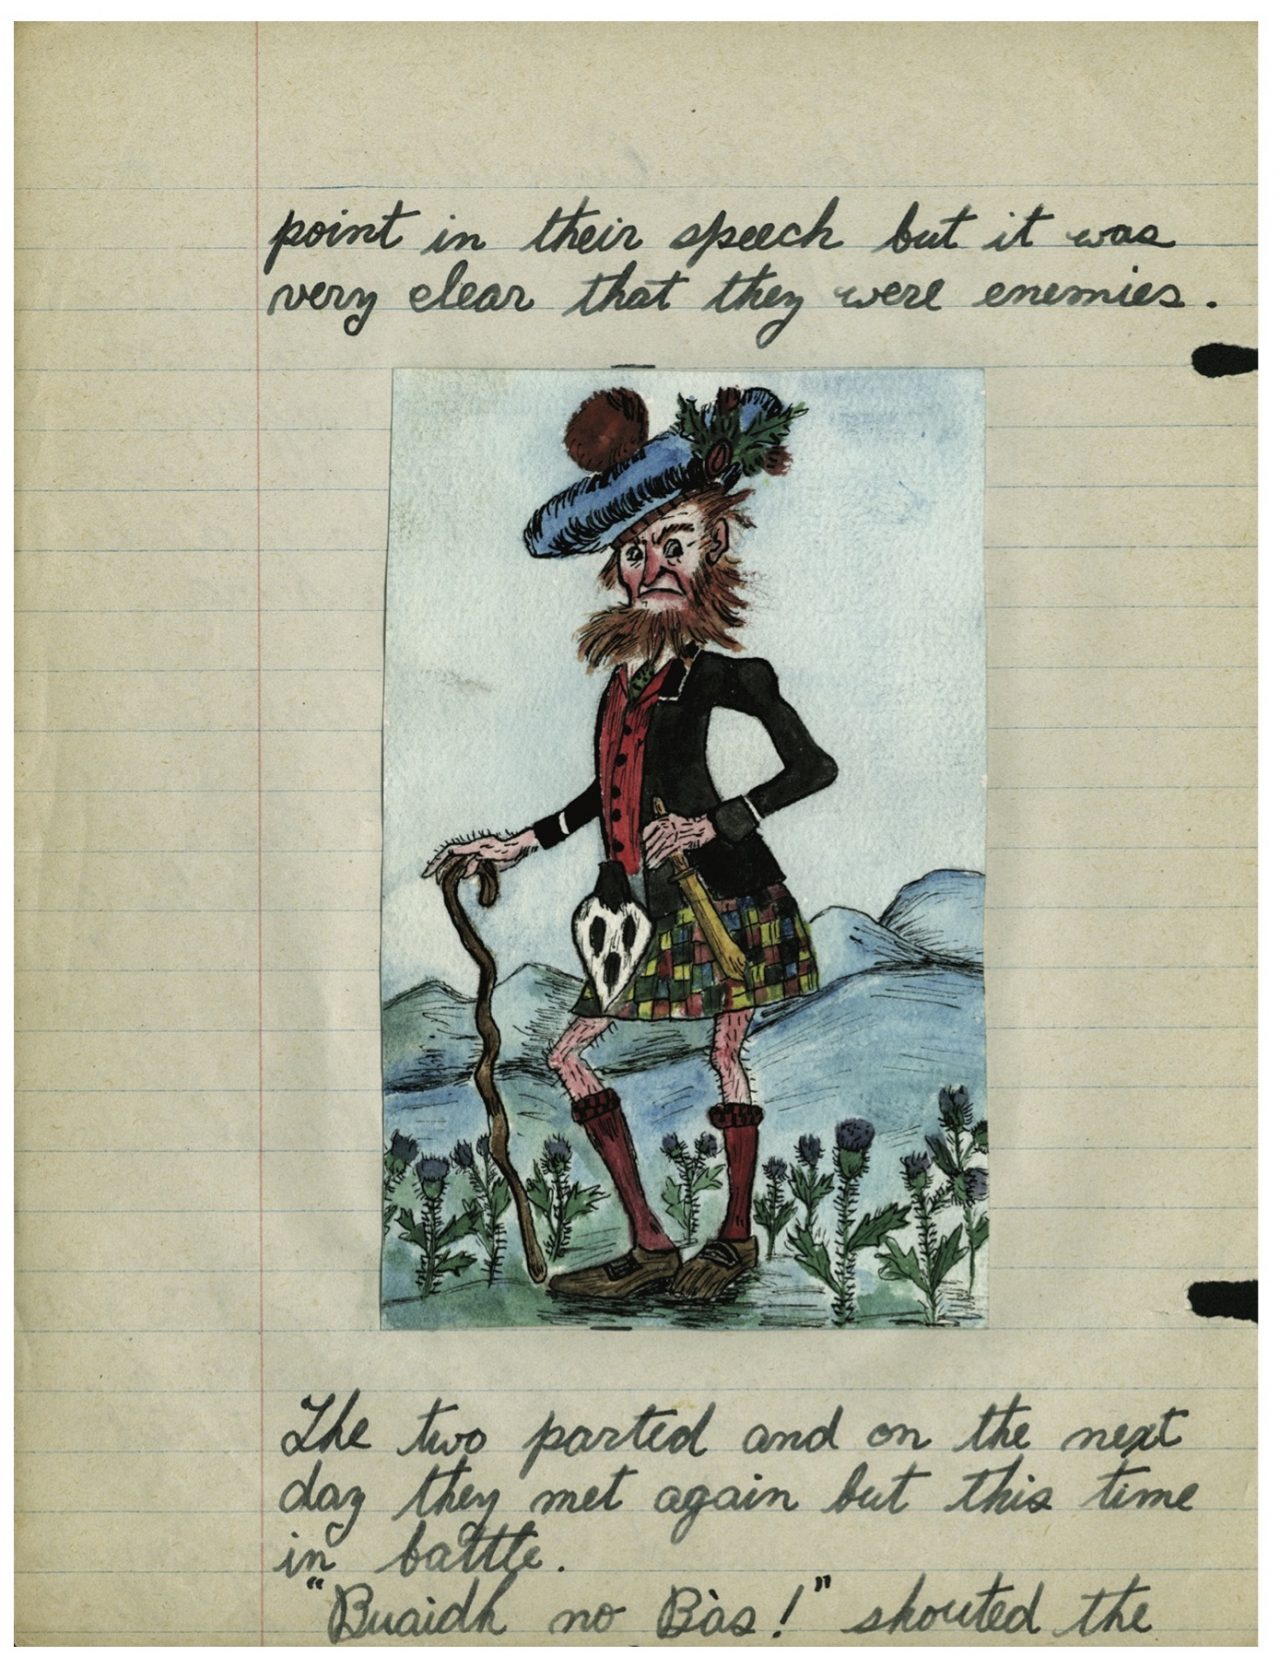 point in their speech but it was
very clear that they were enemies.
The two parted and on the next
day they met again but this time
in battle.
"Buaidh no Bàs!" shouted the